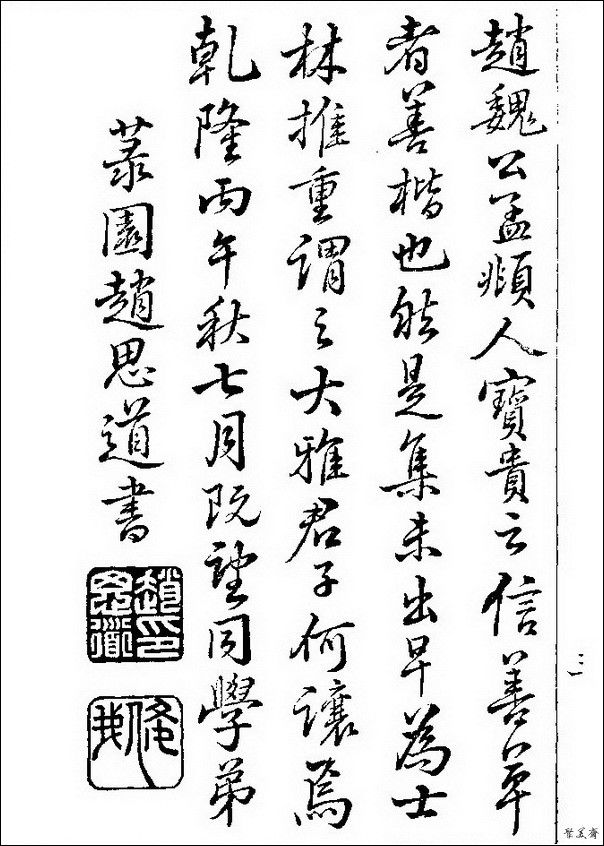 趙魏公孟頫人寶貴之信善草
者善楷也然是集未出早為士
林推重謂之大雅君子何讓焉
乾隆丙午秋七月既望同學弟
菉園趙思道書
趙思道印
三